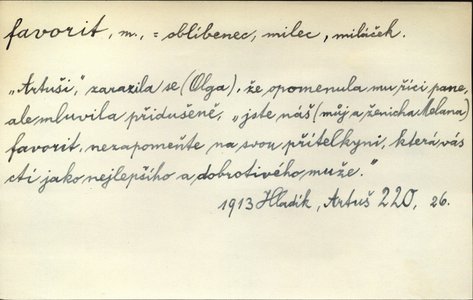 favorit, m., = oblíbenec, milec, miláček.
„Artuši," zarazila se (Olga), že opomenula mu říci pane,
ale mluvila přidušeně, „jste náš (můj a ženicha Melana)
favorit, nezapomeňte na svou přítelkyni, která vás
ctí jako nejlepšího a dobrotivého muže."
1913 Hladík, Artuš 220, 26.